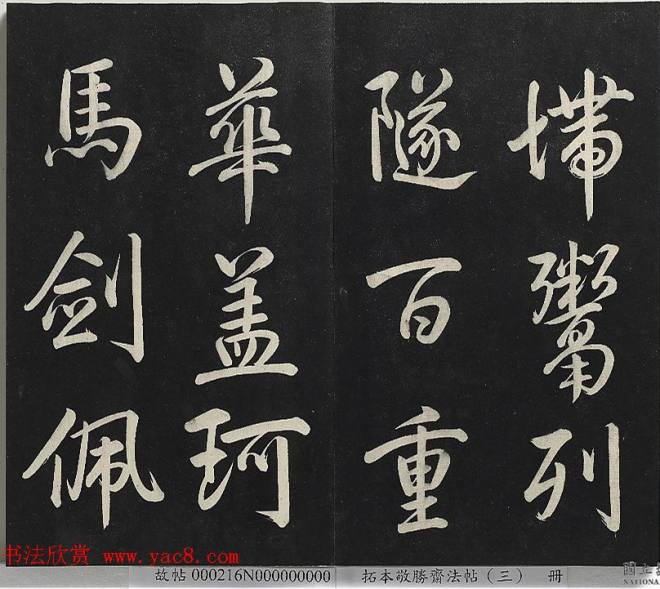 墆鬻列
隧百重
華盖珂
馬剑佩
书法欣赏 www.yac8.com
故帖 000216N000000000 拓本敬勝齋法帖（三） 冊
國立
NATIONAL